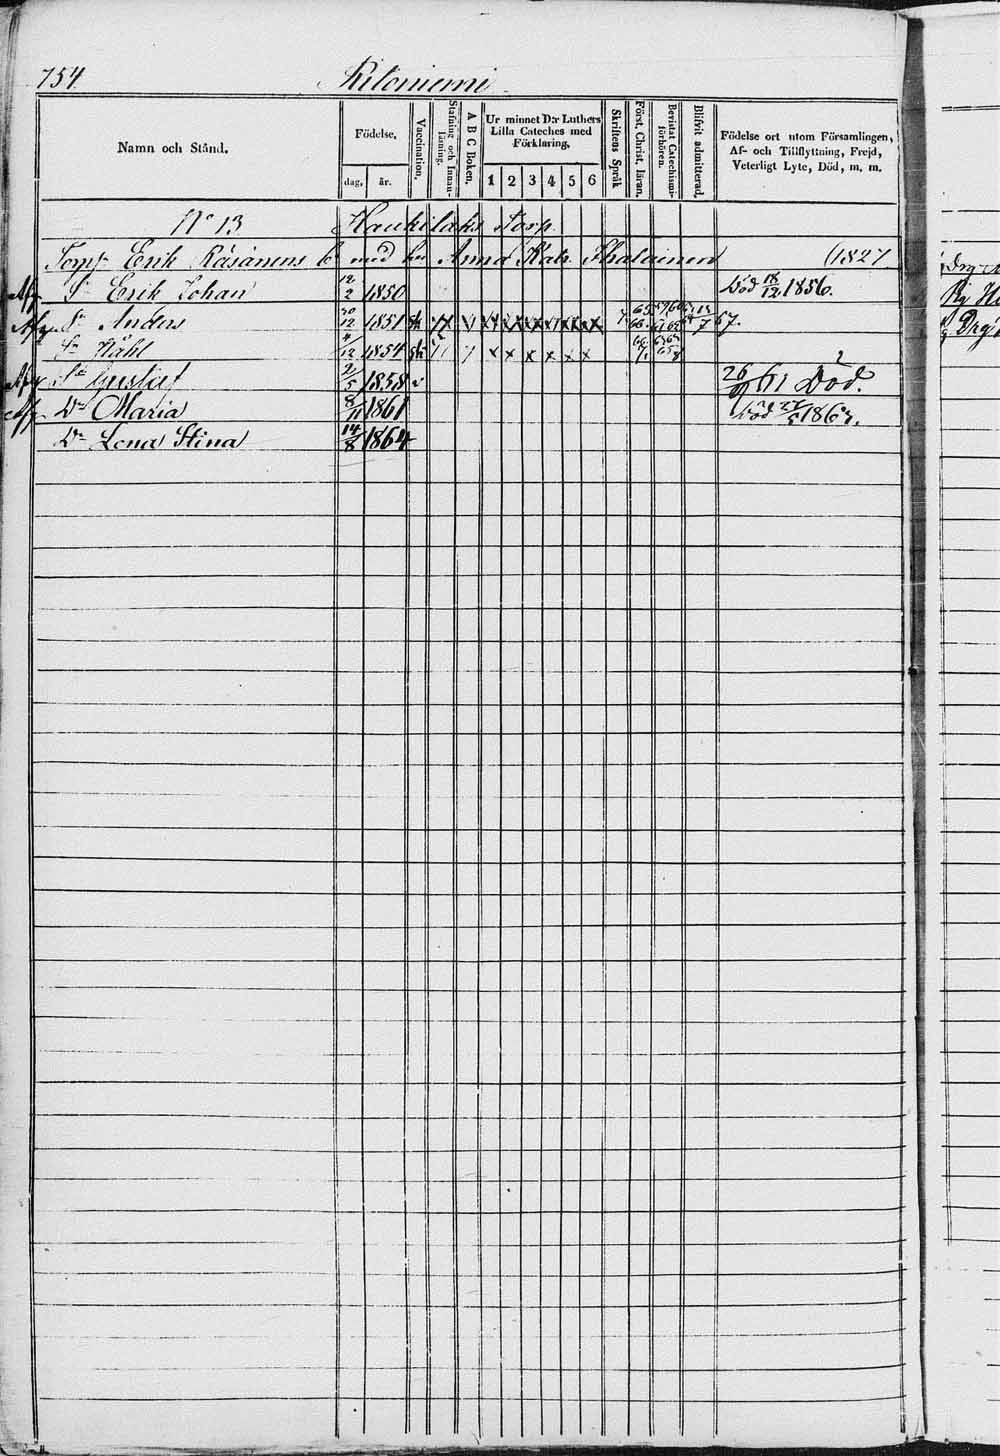 754.
Kiloniemi
Namn och Stånd.
Födelse.
dag, år.
Vaccination.
Stafning och Innanläsning.
A B C Boken.
Ur minnet D:r Luthers Lilla Cateches med Förklaring,
1 2 3 4 5 6
Skriftens Språk
Först. Christ. läran.
Bevistat Catechismiförhören.
Blifvit admitterad.
Födelse ort utom Församlingen, Af- och Tillflyttning, Frejd, Veterligt Lyte, Död, m. m.
No 13 Haukilaks Torp.
Torp Erik Räsänens med Anna Katr. Ihalainen (1827
Sn Erik Johan 12/2 1850 Död 18/12 1856.
Sn Anders 30/12 1851 x x x x x x 7 67.
Sn Påhl 4/12 1854 x x x x x x
Sn Gustaf 2/5 1858 v 26/9 61 Död.
Dr Maria 8/11 1861 Död
Dr Lena Stina 14/8 1864